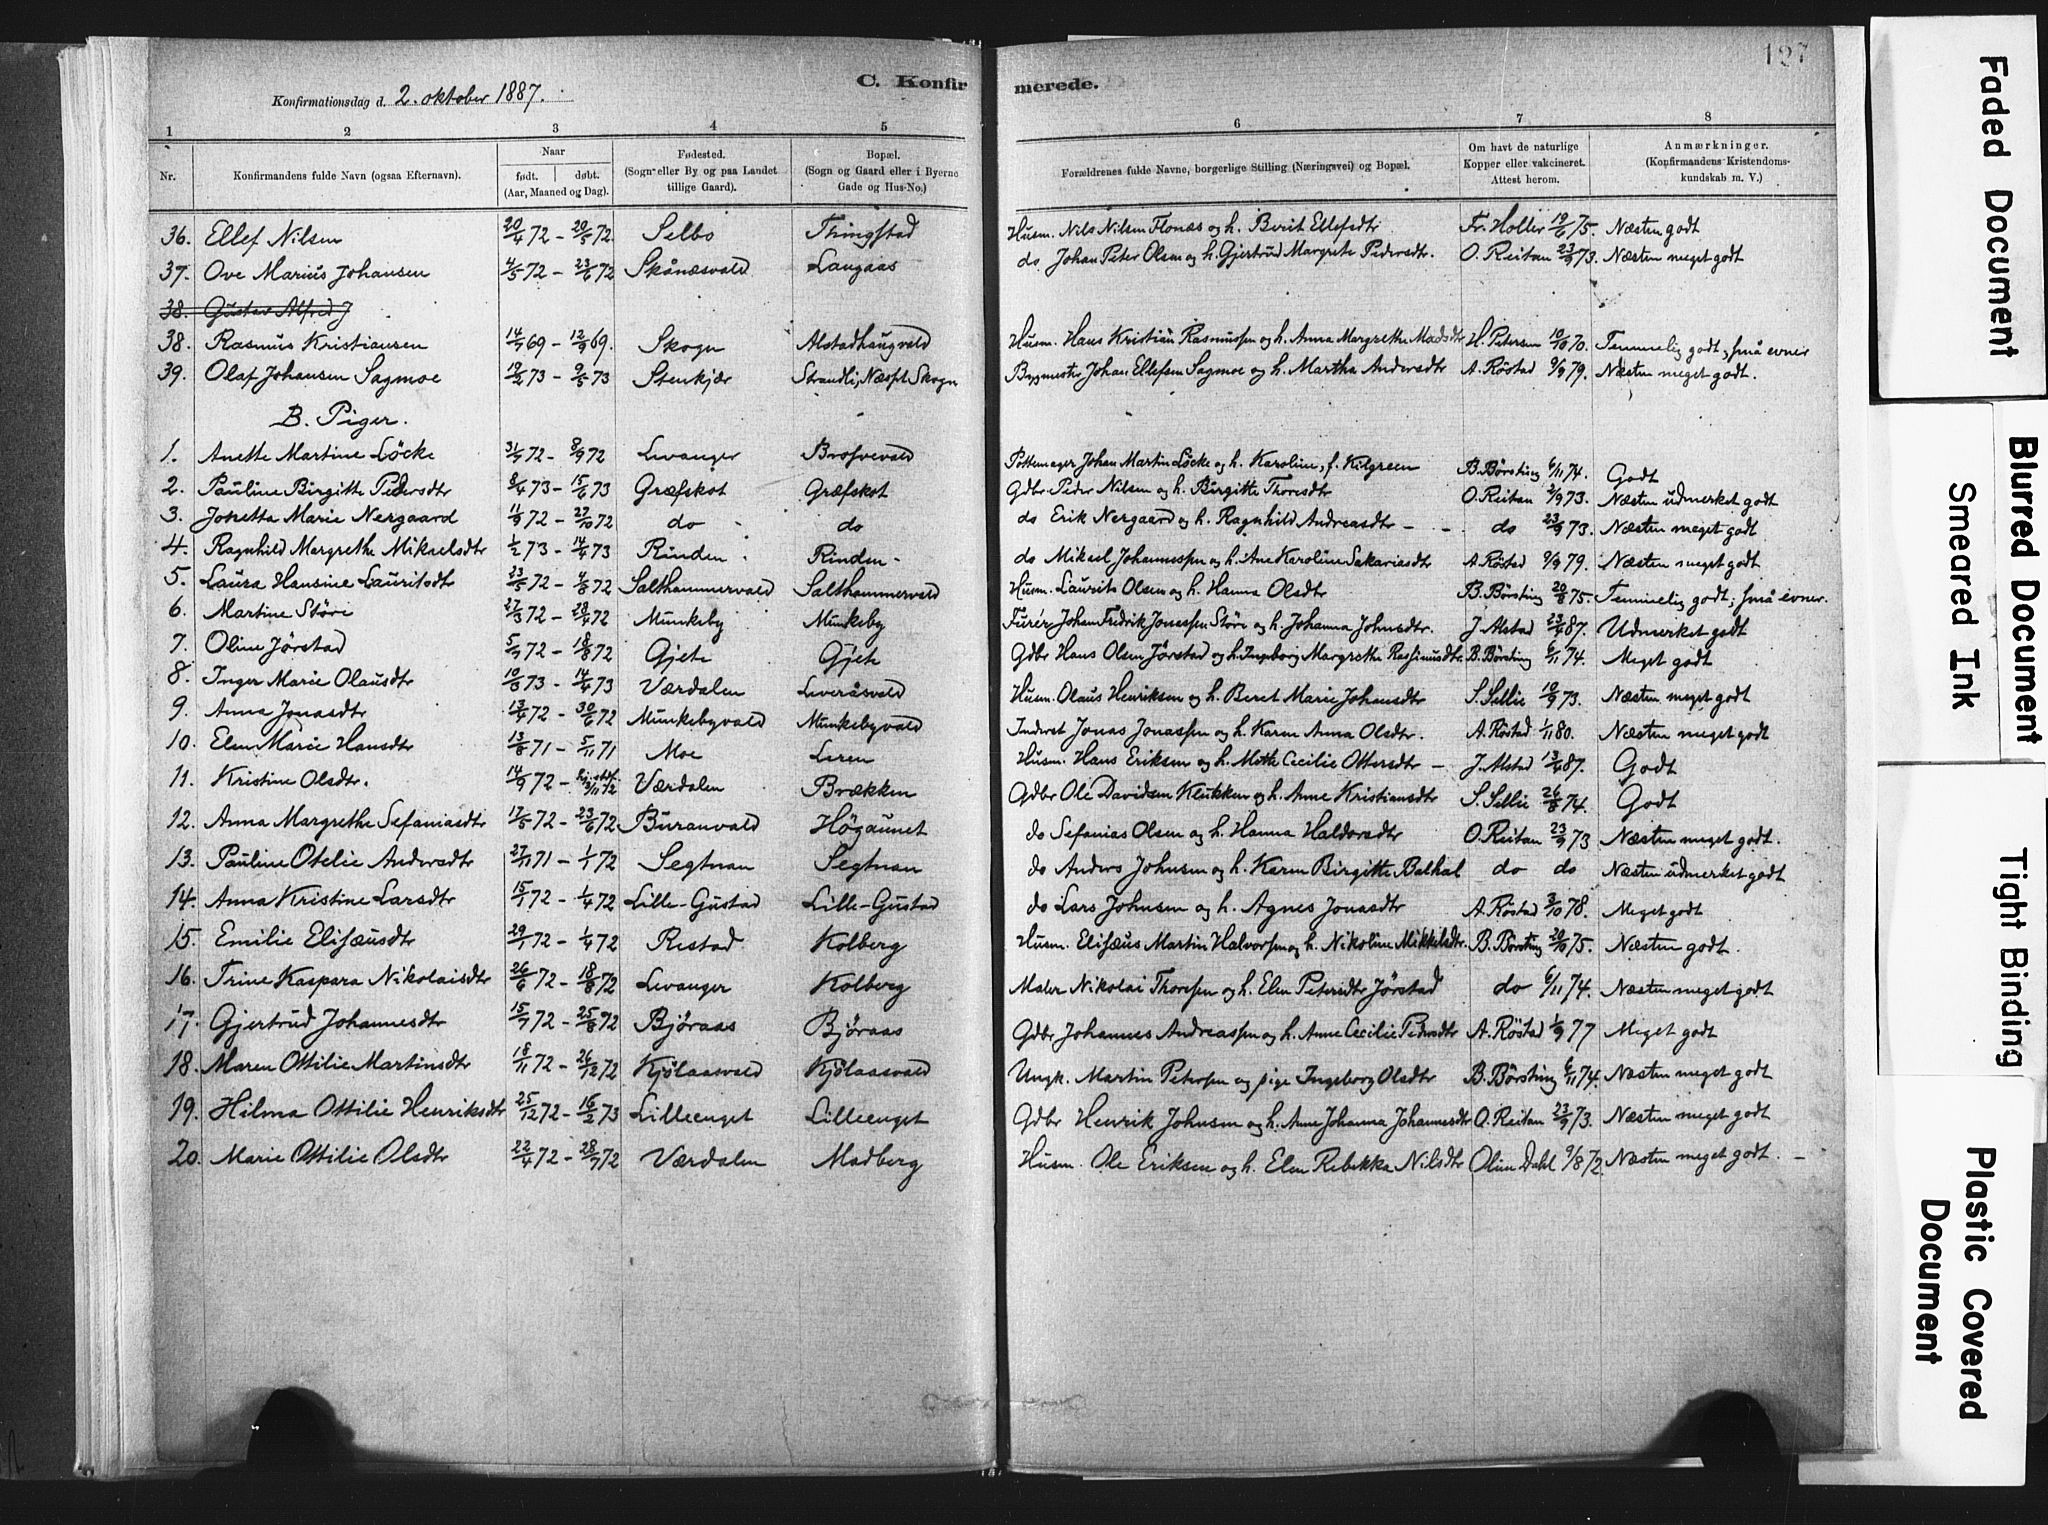 127
C. Konfirmerede.
Konfirmationsdag d. 2. oktober 1887.
1 2 3 4 5 6 7 8
Nr. Konfirmandens fulde Navn (ogsaa Efternavn). Naar født. døbt. (Aar, Maaned og Dag). Fødested. (Sogn eller By og paa Landet tillige Gaard). Bopæl. (Sogn og Gaard eller i Byerne Gade og Hus-No.) Forældrenes fulde Navne, borgerlige Stilling (Næringsvei) og Bopæl. Om havt de naturlige Kopper eller vakcineret. Attest herom. Anmærkninger. (Konfirmandens Kristendomskundskab m. V.)
36. Ellef Nilsen 20/4 72 - 20/5 72. Selbo Thingstad Husm. Nils Nilsen Flonæs og h. Berit Ellefsdtr Fr. Holler 19/6 75. Næsten godt
37. Ove Marius Johansen 4/5 72 - 23/6 72 Skånæsvald Langaas do Johan Peter Olsen og h. Gjertrud Margrete Pedersdtr. O. Reitan 23/9 73. Næsten meget godt
38. Gustav Alfred J
38. Rasmus Kristiansen 14/7 69 - 12/9 69. Skogn Alstadhaugvald Husm. Hans Kristian Rasmussen og h. Anna Margrethe Madsdtr H. Petersen 10/10 70. Temmelig godt, små evner
39. Olaf Johansen Sagmoe 19/2 73 - 9/5 73 Stenkjær Strandli, Næsset Skogn Bygmester Johan Ellefsen Sagmoe og h. Martha Andersdtr A. Röstad 9/9 79. Næsten meget godt.
B. Piger.
1. Anette Martine Löcke 31/7 72 - 8/9 72 Levanger Brofvevald Pottemager Johan Martin Löcke og h. Karoline, f. Kilgreen B. Börsting 6/11 74. Godt
2. Pauline Birgitte Pedersdtr 8/4 73 - 15/6 73 Græfskot Græfskot Gdbr. Peder Nilsen og h. Birgitte Thoresdtr O. Reitan 2/9 73. Næsten udmerket godt
3. Jonetta Marie Nergaard 11/9 72 - 27/10 72 do do do Erik Nergaard og h. Ragnhild Andreasdtr - - do 23/9 73. Næsten meget godt
4. Ragnhild Margrethe Mikaelsdtr 1/2 73 - 14/4 73 Rinden Rinden do Mikael Johannessen og h. Ane Karoline Sakariasdtr A. Röstad 9/9 79. Næsten meget godt
5. Laura Hansine Lauritsdtr 23/5 72 - 4/8 72 Salthammervald Salthammervald Husm. Laurits Olsen og h. Hanna Olsdtr B. Börsting 20/8 75. Temmelig godt; små evner.
6. Martine Störe 27/3 72 - 28/4 72 Munkeby Munkeby Furér Johan Fredrik Jonassen Störe og h. Johanna Johnsdtr. J. Alstad 23/4 87. Udmerket godt
7. Oline Jörstad 5/7 72 - 18/8 72 Gjete Gjete Gdbr Hans Olsen Jörstad og h. Ingeborg Margrethe Rasmusdtr B. Börsting 6/11 74. Meget godt
8. Inger Marie Olausdtr 10/3 73 - 14/4 73 Værdalen Leveråsvald Husm. Olaus Henriksen og h. Beret Marie Johansdtr S. Sellie 10/9 73. Næsten meget godt
9. Anna Jonasdtr 13/4 72 - 30/6 72 Munkebyvald Munkebyvald Inderst Jonas Jonassen og h. Karen Anna Olsdtr. A. Röstad 1/11 80. Næsten meget godt
10. Elen Marie Hansdtr 13/8 71 - 5/11 71 Moe Leren Husm. Hans Eriksen og h. Mette Cecilie Ottersdtr - J. Alstad 13/4 87. Godt
11. Kristine Olsdtr. 14/9 72 - 3/11 72 Værdalen Brækken Gdbr Ole Davidsen Klukken og h. Anne Kristiansdtr S. Sellie 26/8 74. Godt
12. Anna Margrethe Sefaniasdtr 17/5 72 - 23/6 72 Buranvald Högaunet do Sefanias Olsen og h. Hanna Haldorsdtr O. Reitan 23/9 73 Næsten meget godt.
13. Pauline Otelie Andersdtr 27/11 71 - 1/1 72 Segtnan Segtnan do Anders Johnsen og h. Karen Birgitte Balhal do do Næsten udmerket godt
14. Anna Kristine Larsdtr 15/1 72 - 1/4 72 Lille-Gustad Lille-Gustad do Lars Johnsen og h. Agnes Jonasdtr A. Röstad 3/10 78. Meget godt
15. Emilie Elisæusdtr 29/1 72 - 1/4 72 Restad Kolberg Husm. Elisæus Martin Halvorsen og h. Nikoline Mikkelsdtr. B. Börsting 20/10 75. Næsten godt.
16. Trine Kaspara Nikolaisdtr 26/6 72 - 18/8 72 Levanger Kolberg Maler Nikolai Thoresen og h. Elen Petersdtr Jörstad do 6/11 74. Næsten meget godt
17. Gjertrud Johannesdtr 15/7 72 - 25/8 72 Björaas Björaas Gdbr Johannes Andreassen og h. Anne Cecilie Pedersdtr A. Röstad 1/9 77 Meget godt
18. Maren Ottilie Martinsdtr 18/11 72 - 26/12 72 Kjölaasvald Kjölaasvald Ungk. Martin Petersen og pige Ingeborg Olsdtr B. Börsting 6/11 74. Næsten meget godt
19. Hilma Ottilie Henriksdtr 25/12 72 - 16/2 73 Lilleenget Lilleenget Gdbr Henrik Johnsen og h. Anne Johanna Johannesdtr O. Reitan 23/9 73. Næsten meget godt
20. Marie Ottilie Olsdtr 22/4 72 - 28/7 72 Værdalen Madberg Husm. Ole Eriksen og h. Elen Rebekka Nilsdtr Oline Dahl 9/8 72 Næsten meget godt. -
Faded Document
Blurred Document
Smeared Ink
Tight Binding
Plastic Covered
Document